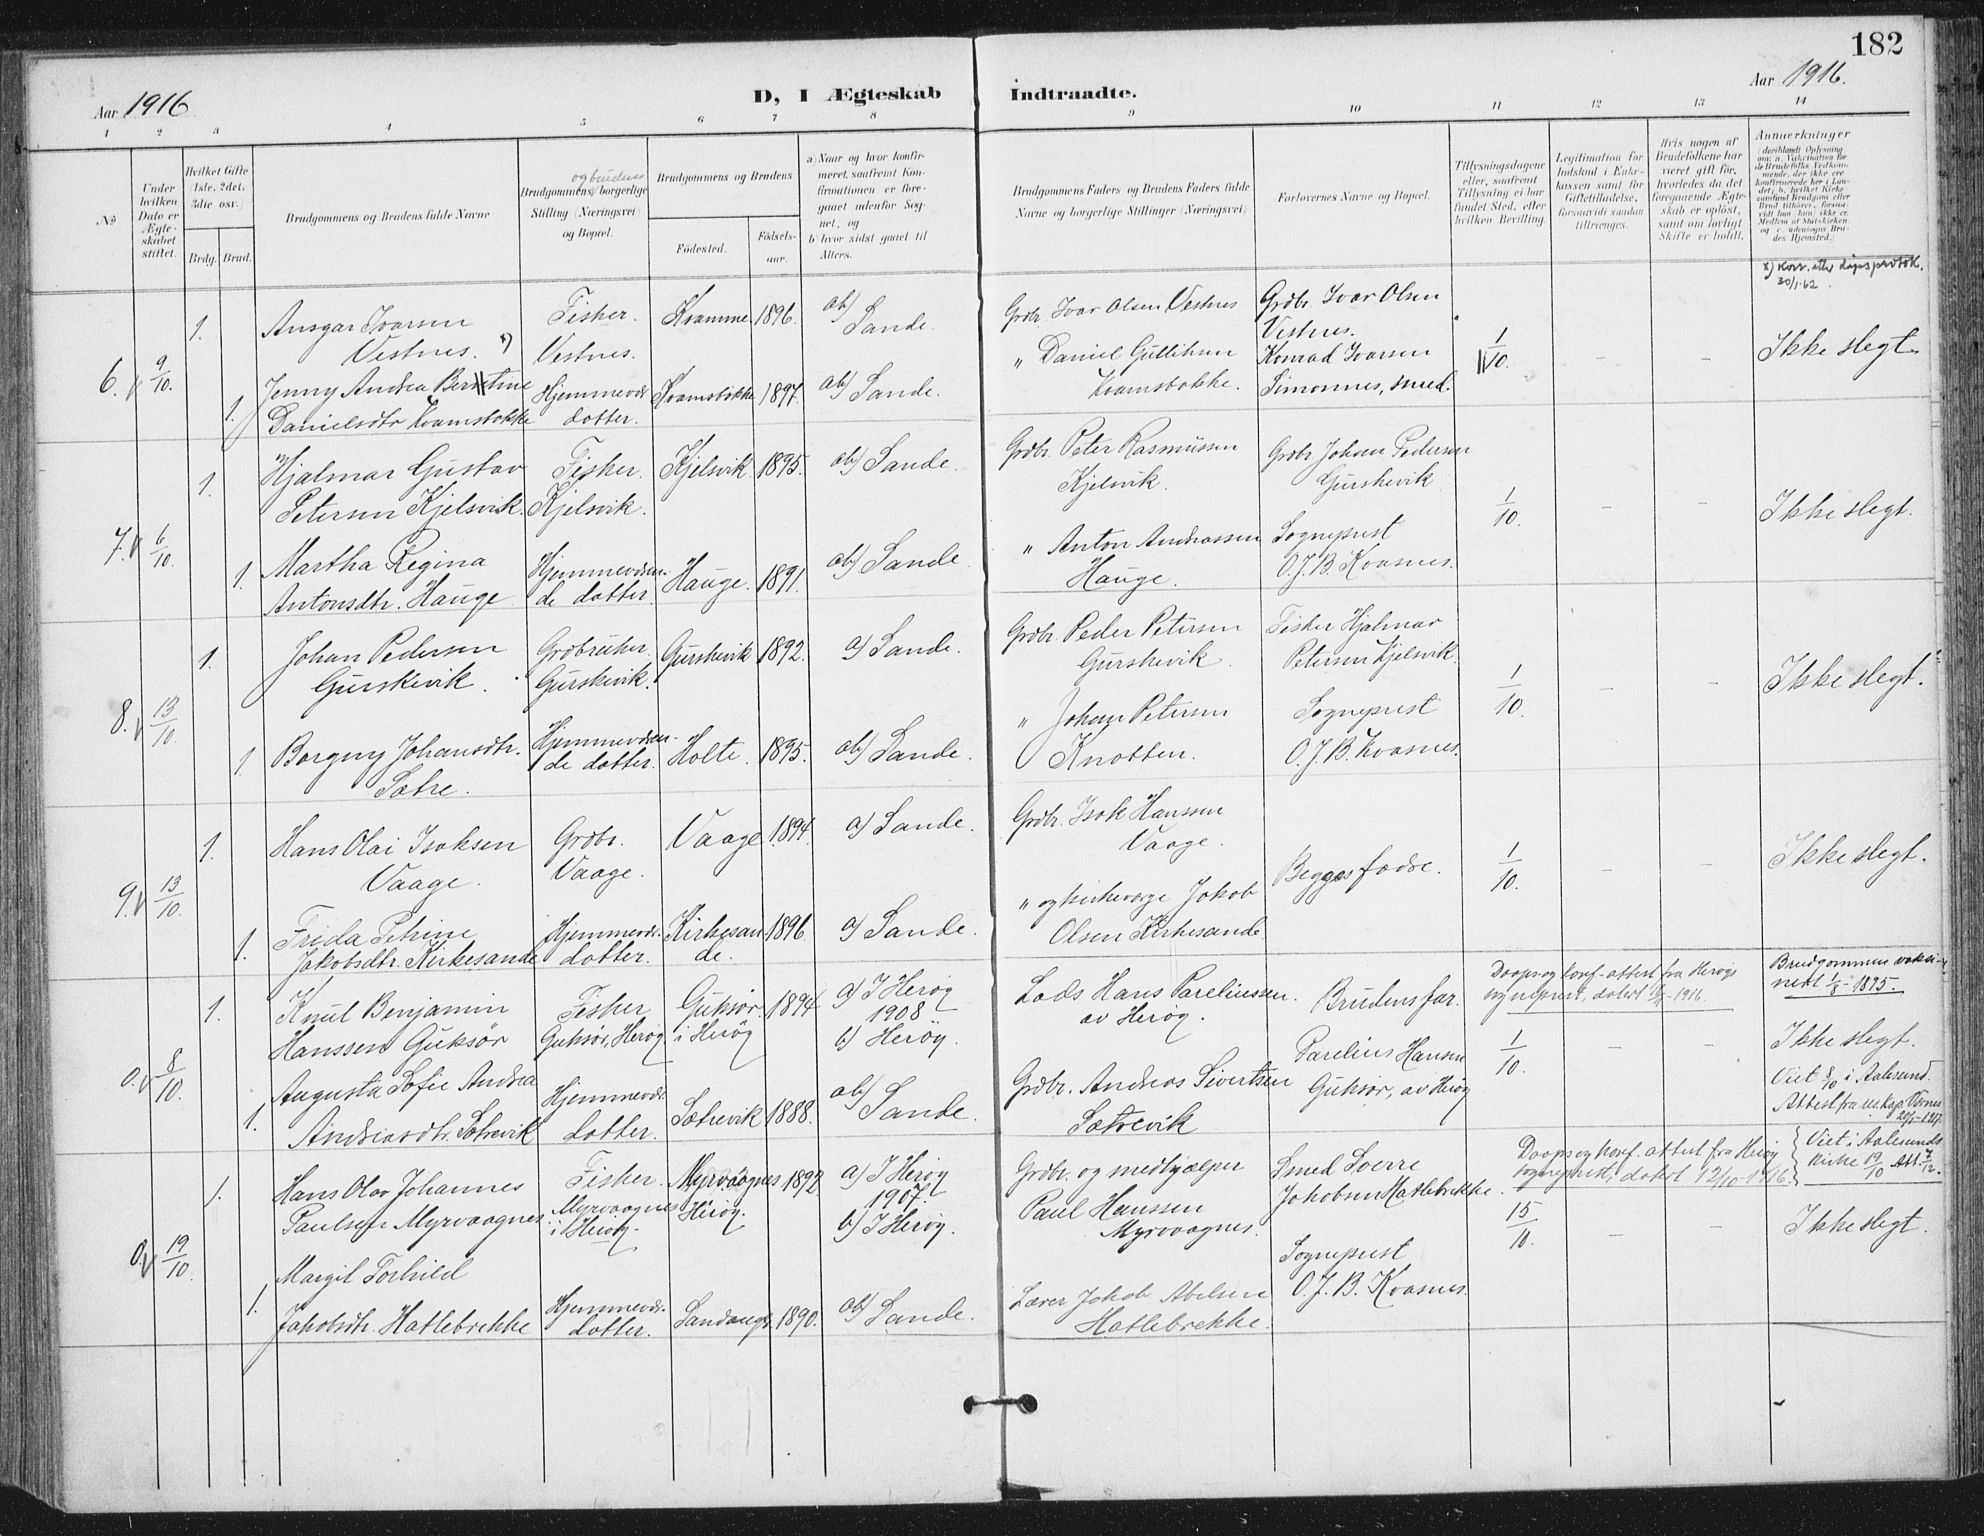 182
Aar 1916
D, I Ægteskab Indtraadte.
Aar 1916.
1 2 3 4 5 6 7 8 9 10 11 12 13 14
No
Under hvilken Dato er Ægteskabet stiftet.
Hvilket Gifte 1ste. 2det. 3die osv.)
Brdg. Brud.
Brudgommens og Brudens fulde Navne
og brudens
Brudgommens borgerlige Stilling (Næringsvei) og Bopæl.
Brudgommens og Brudens
Födested.
Födselsaar.
a) Naar og hvor konfirmeret, saafremt Konfirmationen er foregaaet udenfor Sognet, og
b) hvor sidst gaaet til Alters.
Brudgommens Faders og Brudens Faders fulde Navne og borgerlige Stillinger (Næringsvei)
Forlovernes Navne og Bopæl.
Tillysningsdagene eller, saafremt Tillysning ei har fundet Sted, efter hvilken Bevilling.
Legitimation for Indskud i Enkekassen samt for Giftetilladelse, forsaavidt saadan tiltrænges.
Hvis nogen af Brudefolkene har været gift før, hvorledes da det foregaaende Ægteskab er oplöst, samt om lovligt Skifte er holdt.
Anmerkninger
(deriblandt Oplysning om: a. Vakcination for de Brudefolks Vedkommende, der ikke ere konfirmerede her i Landet; b. hvilket Kirkesamfund Brudgom eller Brud tilhörer, forsaavidt han (hun) ikke er Medlem af Statskirken, og c. udensogns Brudes Hjemsted.)
x) Korr. etter dåpsprotok.
30/1-62.
6. 9/10.
1. Ansgar Ivarsen Vestnes. x)
Fisher. Vestnes.
Kvamme 1896.
ab) Sande.
Grdbr. Ivar Olsen Vestnes
Grdbr. Ivar Olsen Vestnes.
1. Jenny Andrea Berntine Danielsdtr Kvamsbakke
Hjemmevær. dotter.
Kvamsbakke 1897.
ab) Sande.
" Daniel Gulliksen Kvamsbakke.
Konrad Ivarsen Simonnes, smed.
1/10. - -
Ikke slegt.
7. 6/10.
1. Hjalmar Gustav Petersen Kjelsvik.
Fisher. Kjelsvik.
Kjelsvik 1895.
ab) Sande.
Grdbr. Peter Rasmussen Kjelsvik.
Grdbr. Johan Pedersen Gurskevik
1. Martha Regina Antonsdtr. Hauge
Hjemmeværende dotter.
Hauge. 1891.
ab) Sande.
" Anton Andreassen Hauge.
Sogneprest O.J.B. Kvasnes.
1/10. - -
Ikke slegt.
8. 13/10.
1. Johan Pedersen Gurskevik.
Grdbruker. Gurskevik.
Gurskevik 1892.
a) Sande.
Grdbr. Peder Petersen Gurskevik.
Fisker Hjalmar Petersen Kjelsvik.
1. Borgny Johansdtr. Sætre.
Hjemmeværende dotter.
Holte. 1895.
ab) Sande.
" Johan Petersen Knotten.
Sogneprest O.J.B. Kvasnes.
1/10. - -
Ikke slegt.
9. 13/10
1. Hans Olai Isaksen Vaage.
Grdbr. Vaage.
Vaage 1894.
a) Sande.
Grdbr. Isak Hanssen Vaage.
1. Frida Petrine Jakobsdtr. Kirkesande
Hjemmevær. dotter.
Kirkesande. 1896
a) Sande.
" og kirkeværge Jakob Olsen Kirkesande.
Begges fædre.
1/10. - -
Ikke slegt.
0. 8/10.
1. Knut Benjamin Hanssen Guksør
Fisker Guksør, Herøy
Guksør i Herøy 1894
a) I Herøy 1908
b) Herøy.
Lods Hans Pareliussen. av Herøy.
Brudens far.
Daaps og konf-attest fra Herøys sogneprest, datert 1916.
Brudgommen vaksinert 1/8-1895.
1. Augusta Sofie Andrea Andreasdtr. Sætrevik
Hjemmevær. dotter.
Sætrevik 1888.
ab) Sande.
Grdbr. Andreas Sivertsen Sætrevik
Parelius Hansen Guksør, av Herøy
1/10. - -
Ikke slegt.
Viet 8/10 i Aalesund.
Attest fra res.kap.
0. 19/10.
1. Hans Olav Johannes Paulsen Myrvaagnes
Fisker. Myrvaagnes i Herøy.
Myrvaagnes Herøy. 1892
a) I Herøy 1907
b) I Herøy.
Grdbr. og medhjælper Paul Hanssen Myrvaagnes.
Smed Sverre Jakobsen Hatlebrekke.
Daaps og konf. attest fra Herøy sogneprest, datert 12/10-1916.
Viet i Aalesunds kirke 19/10 Att. 7/12.
1. Margit Torhild Jakobsdtr. Hatlebrekke
Hjemmevær. dotter.
Sandanger. 1890.
ab) Sande.
Lærer Jakob Abelsen Hatlebrekke.
Sogneprest O.J.B. Kvasnes.
15/10. - -
Ikke slegt.